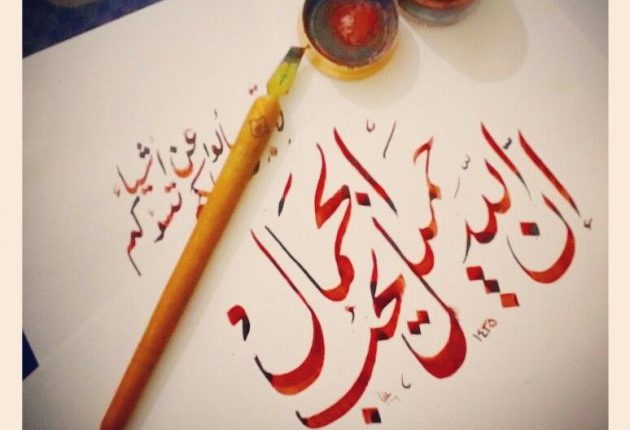 إن الله جميل يحب الجمال
١٤٣٥
تسألوا عن أشياء
تسؤكم